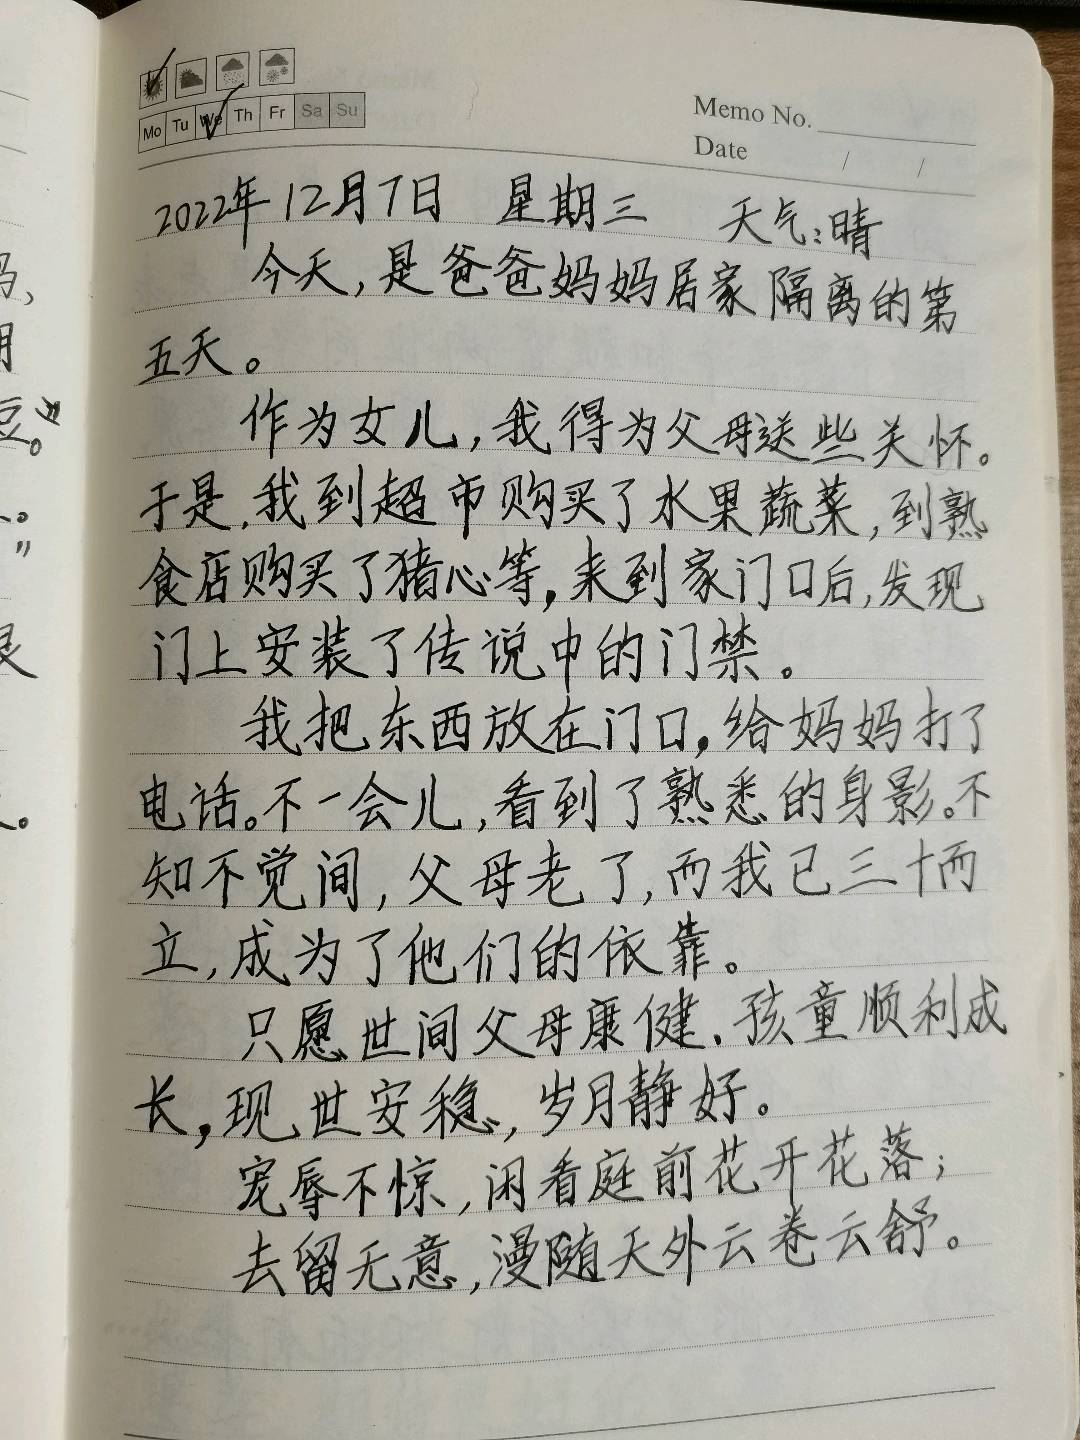 Mo Tu We Th Fr Sa Su
Memo No.
Date / /
2022年12月7日 星期三 天气:晴
今天,是爸爸妈妈居家隔离的第
五天。
作为女儿,我得为父母送些关怀。
于是,我到超市购买了水果蔬菜,到熟
食店购买了猪心等,来到家门口后,发现
门上安装了传说中的门禁。
我把东西放在门口,给妈妈打了
电话。不一会儿,看到了熟悉的身影。不
知不觉间,父母老了,而我已三十而
立,成为了他们的依靠。
只愿世间父母康健、孩童顺利成
长,现世安稳,岁月静好。
宠辱不惊,闲看庭前花开花落;
去留无意,漫随天外云卷云舒。